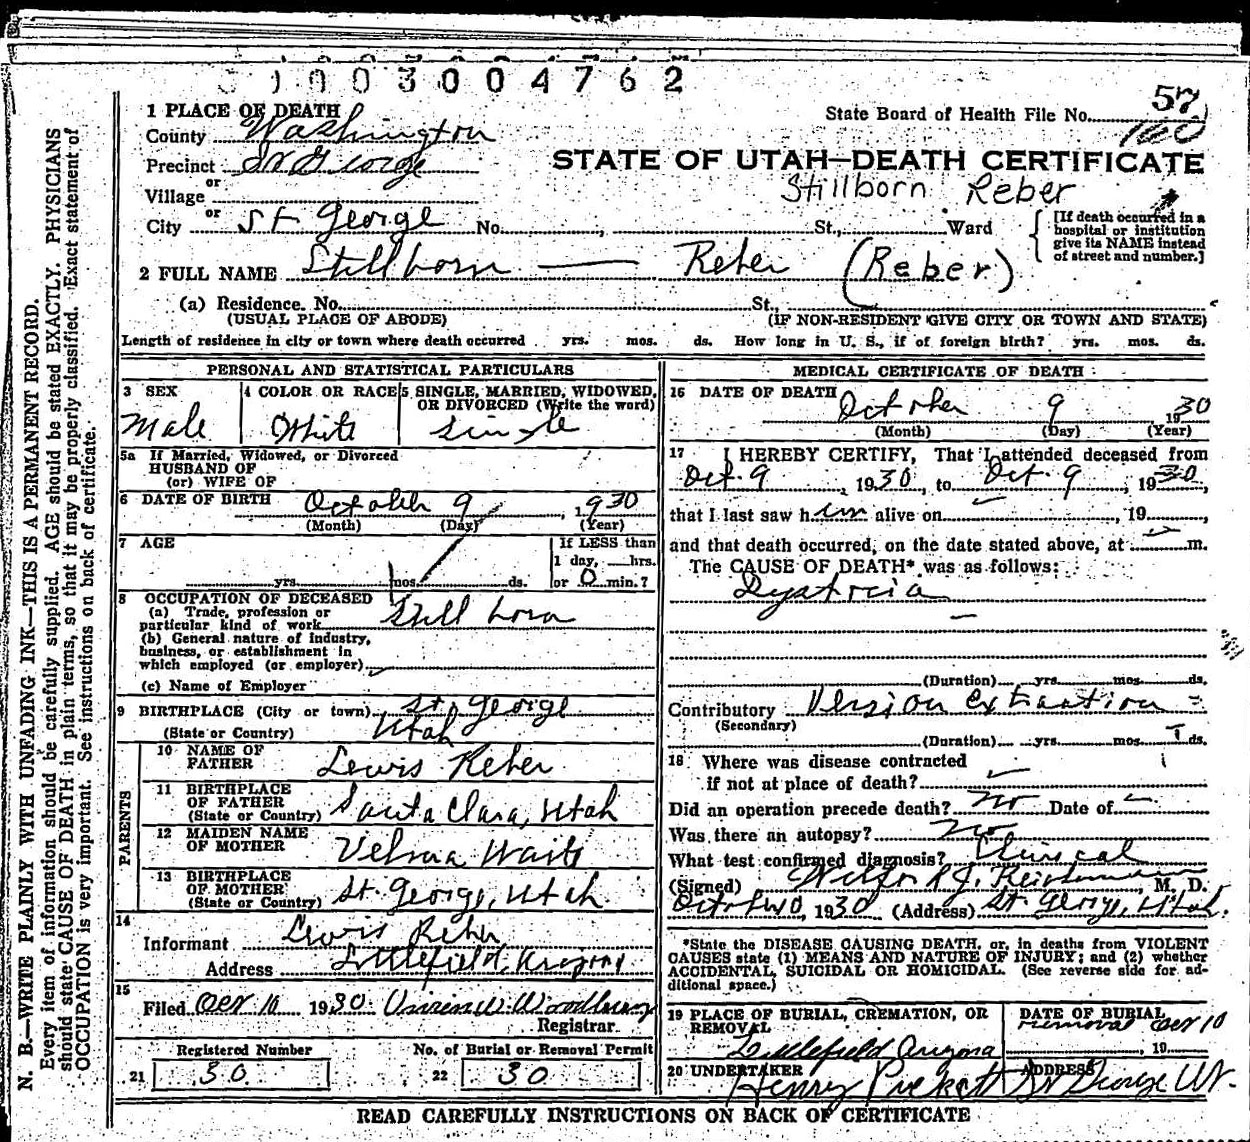 1003004762
1 PLACE OF DEATH
County Washington
Precinct St George
or
Village
or
City St George No. , St., Ward
State Board of Health File No. 57
160
STATE OF UTAH—DEATH CERTIFICATE
Stillborn Reber
[If death occurred in a
hospital or institution
give its NAME instead
of street and number.]
2 FULL NAME Stillborn — Reber (Reber)
(a) Residence. No. St.,
(USUAL PLACE OF ABODE) (IF NON-RESIDENT GIVE CITY OR TOWN AND STATE)
Length of residence in city or town where death occurred yrs. mos. ds. How long in U. S., if of foreign birth? yrs. mos. ds.
PERSONAL AND STATISTICAL PARTICULARS
3 SEX 4 COLOR OR RACE 5 SINGLE, MARRIED, WIDOWED,
OR DIVORCED (Write the word)
Male White Single
5a If Married, Widowed, or Divorced
HUSBAND OF
(or) WIFE OF
6 DATE OF BIRTH October 9, 1930
(Month) (Day) (Year)
7 AGE If LESS than
1 day, hrs.
yrs. mos. ds. or 0 min.?
8 OCCUPATION OF DECEASED
(a) Trade, profession or
particular kind of work Still born
(b) General nature of industry,
business, or establishment in
which employed (or employer)
(c) Name of Employer
9 BIRTHPLACE (City or town) St. George
(State or Country) Utah
PARENTS
10 NAME OF
FATHER Lewis Reber
11 BIRTHPLACE
OF FATHER
(State or Country) Santa Clara, Utah
12 MAIDEN NAME
OF MOTHER Velma Waite
13 BIRTHPLACE
OF MOTHER
(State or Country) St. George, Utah.
14
Informant Lewis Reber
Address Littlefield, Arizona
15
Filed Oct 10 1930. W. Woodbury
Registrar
Registered Number No. of Burial or Removal Permit
21 30 22 30
MEDICAL CERTIFICATE OF DEATH
16 DATE OF DEATH October 9 1930
(Month) (Day) (Year)
17 I HEREBY CERTIFY, That I attended deceased from
Oct. 9, 1930, to Oct. 9, 1930,
that I last saw him alive on , 19 ,
and that death occurred, on the date stated above, at m.
The CAUSE OF DEATH* was as follows:
Dystocia
(Duration) yrs. mos. ds.
Contributory Version extraction
(Secondary)
(Duration) yrs. mos. ds.
18 Where was disease contracted
if not at place of death?
Did an operation precede death? No Date of
Was there an autopsy? No
What test confirmed diagnosis? Clinical
(Signed) J. Reichmann, M. D.
1930 (Address) St. George, Utah.
*State the DISEASE CAUSING DEATH, or, in deaths from VIOLENT
CAUSES state (1) MEANS AND NATURE OF INJURY; and (2) whether
ACCIDENTAL, SUICIDAL OR HOMICIDAL. (See reverse side for ad-
ditional space.)
19 PLACE OF BURIAL, CREMATION, OR
REMOVAL
Littlefield Arizona
DATE OF BURIAL
removal Oct 10
, 19
20 UNDERTAKER ADDRESS
Henry Pickett St George Ut.
READ CAREFULLY INSTRUCTIONS ON BACK OF CERTIFICATE
N. B.—WRITE PLAINLY WITH UNFADING INK—THIS IS A PERMANENT RECORD.
Every item of information should be carefully supplied. AGE should be stated EXACTLY. PHYSICIANS
should state CAUSE OF DEATH in plain terms, so that it may be properly classified. Exact statement of
OCCUPATION is very important. See instructions on back of certificate.